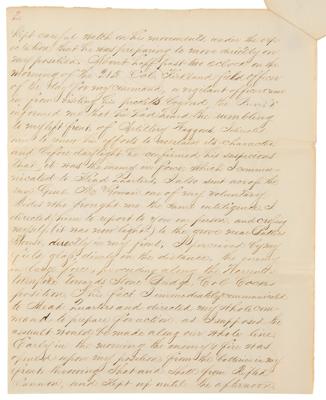 2
kept careful watch on his movements under the ex-
pectation that he was preparing to move directly on
my position. About half past two oclock on the
morning of the 21st Col. Kirkland field officer
of the day for my command, a vigilant officer
in front visiting the pickets beyond the Run
informed me that he had heard the rumbling
to my left front, of Artillery Waggons
and soon the efforts to ascertain its character
and before daylight he confirmed his suspicions
that it was the enemy in force which I commu-
nicated to Head Quarters. I also sent across the
run one of my voluntary
Aides who brought me the same intelligence. I
directed him to report to you in person, and crossing
myself (it was now light) to the grove near
House, directly in my front, I perceived by my
field glass dimly in the distance, the enemy
in large force, proceeding along the Warrenton
turnpike towards Stone Bridge, Col. Cockes
position. This fact I immediately communicated
to Head Quarters and directed my whole com-
mand to prepare for action, as I supposed the
assault would be made along our whole line.
Early in the morning the enemy's fire was
opened upon my position from the batteries in my
front, throwing Shot and Shell from Rifled
Cannon, and kept up until the afternoon